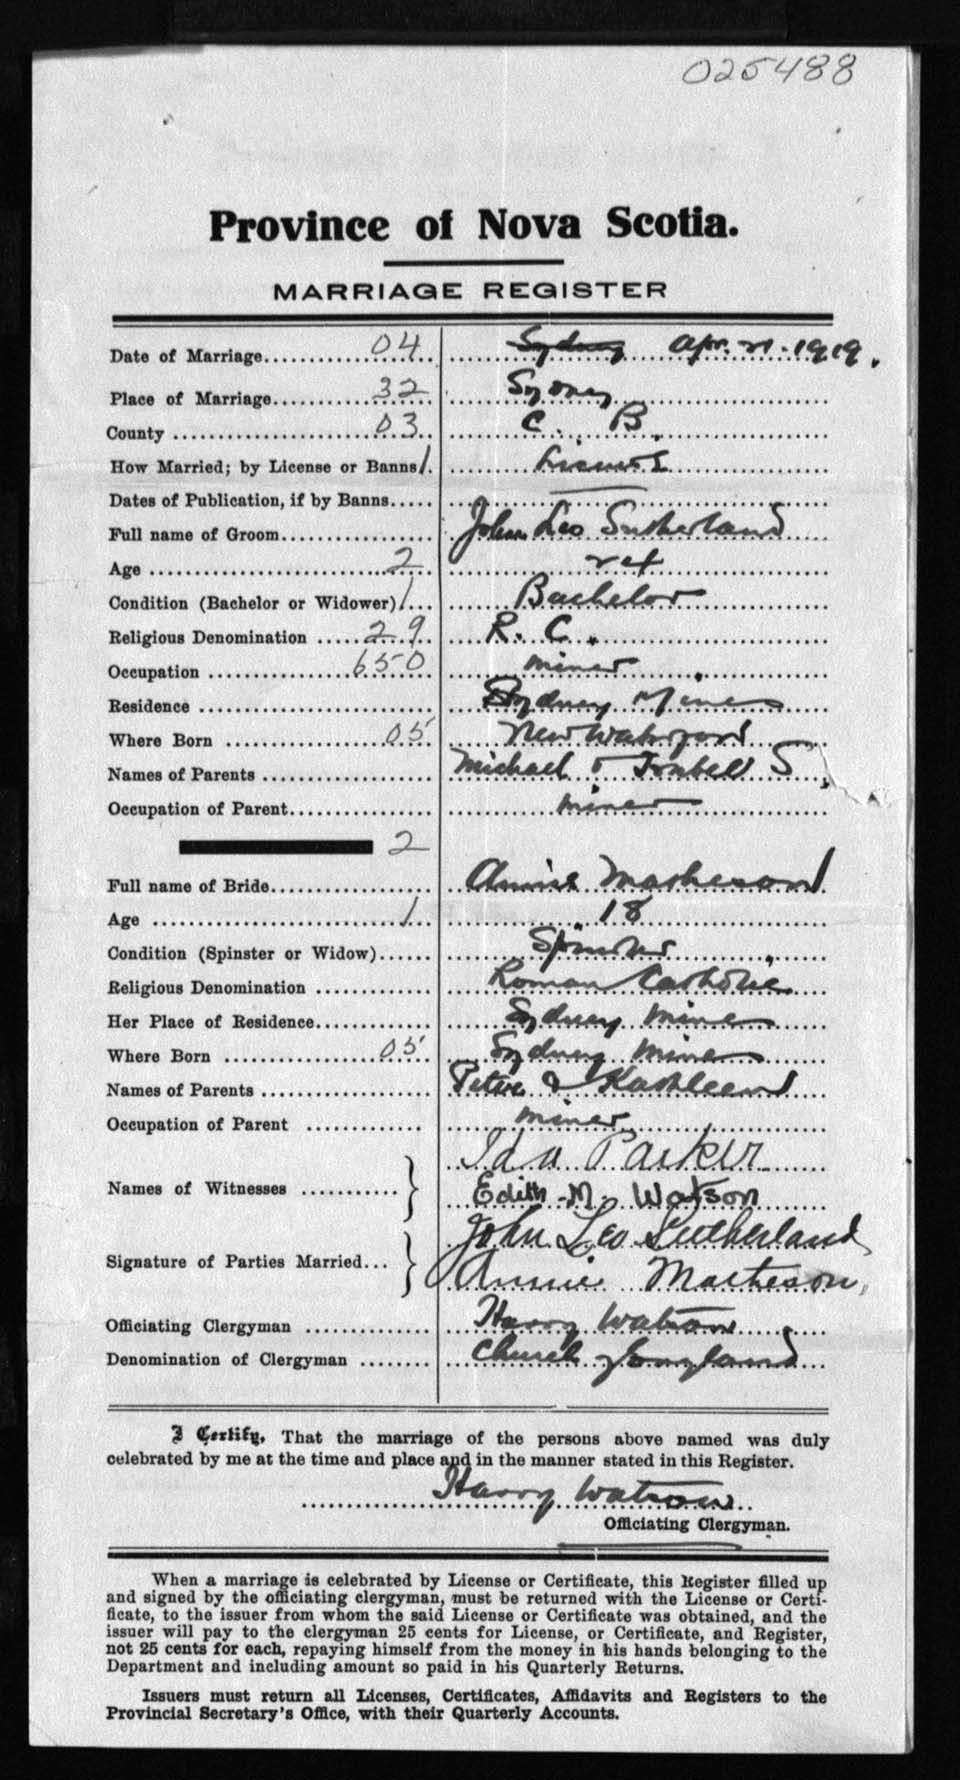 025488
Province of Nova Scotia.
MARRIAGE REGISTER
Date of Marriage 04 Sydney Apr. 21. 1919.
Place of Marriage 32 Sydney
County 03 C. B.
How Married; by License or Banns 1 License
Dates of Publication, if by Banns
Full name of Groom John Leo Sutherland
Age 2 24
Condition (Bachelor or Widower) 1 Bachelor
Religious Denomination 29 R. C.
Occupation 650 miner
Residence Sydney Mines
Where Born 05 New Waterford
Names of Parents Michael & S
Occupation of Parent miner
2
Full name of Bride Annie Matheson
Age 1 18
Condition (Spinster or Widow) Spinster
Religious Denomination Roman Catholic
Her Place of Residence Sydney Mines
Where Born 05 Sydney Mines
Names of Parents Peter & Kathleen
Occupation of Parent miner
Ida Parker
Names of Witnesses
Edith M. Watson
John Leo Sutherland
Signature of Parties Married
Annie Matheson,
Officiating Clergyman Harry Watson
Denomination of Clergyman Church of England
I Certify, That the marriage of the persons above named was duly
celebrated by me at the time and place and in the manner stated in this Register.
Harry Watson
Officiating Clergyman.
When a marriage is celebrated by License or Certificate, this Register filled up
and signed by the officiating clergyman, must be returned with the License or Certi-
ficate, to the issuer from whom the said License or Certificate was obtained, and the
issuer will pay to the clergyman 25 cents for License, or Certificate, and Register,
not 25 cents for each, repaying himself from the money in his hands belonging to the
Department and including amount so paid in his Quarterly Returns.
Issuers must return all Licenses, Certificates, Affidavits and Registers to the
Provincial Secretary's Office, with their Quarterly Accounts.